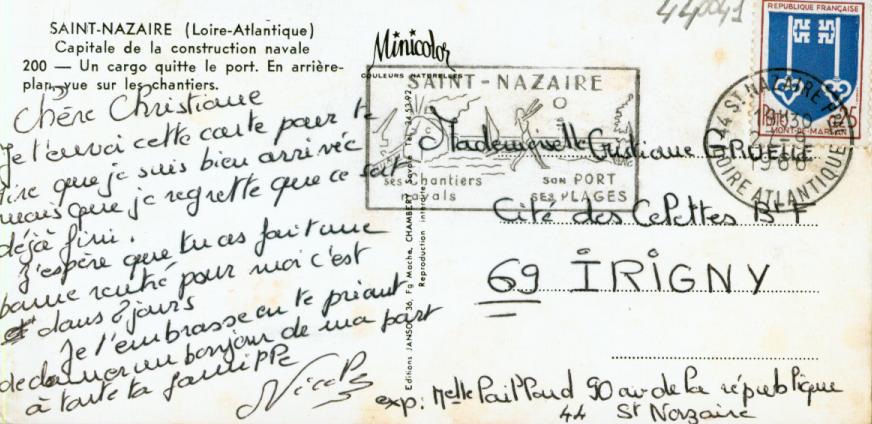 SAINT-NAZAIRE (Loire-Atlantique)
Capitale de la construction navale
200 — Un cargo quitte le port. En arrière-
plan, vue sur les chantiers.
Minicolor
COULEURS NATURELLES
Chère Christiane
Je t'envoi cette carte pour te
dire que je suis bien arrivée
mais que je regrette que ce soit
déjà fini.
J'espère que tu as fait une
bonne rentré pour moi c'est
dans 8 jours
Je t'embrasse en te priant
de donner un bonjour de ma part
à toute ta famille
Nicole
Editions JANSOL, 36, Fg Mache, CHAMBERY Savoie Tél. 34.53-92
Reproduction interdite
44041
SAINT-NAZAIRE
ses chantiers
navals
SON PORT
SES PLAGES
REPUBLIQUE FRANÇAISE
0,25
MONT-DE-MARSAN
44 ST NAZAIRE P.
18H30
1966
LOIRE ATLANTIQUE
Mademoiselle Cristiane GRUELLE
Cité des Celettes Bt F
69 IRIGNY
exp: Melle Paillard 90 av de la république
44 St Nazaire